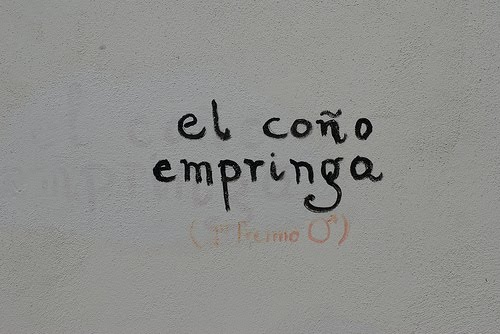 el coño
empringa
(1er Premio ♂)